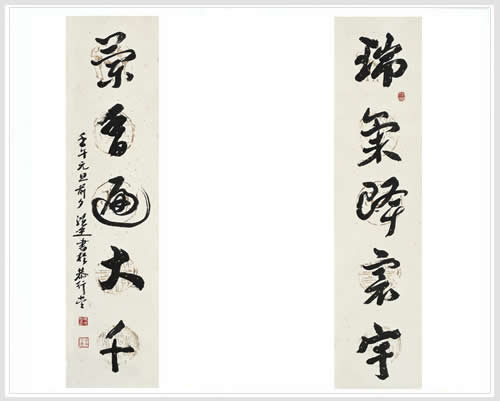 瑞氣降寰宇
蘭香遍大千
壬午元旦前夕書於行堂